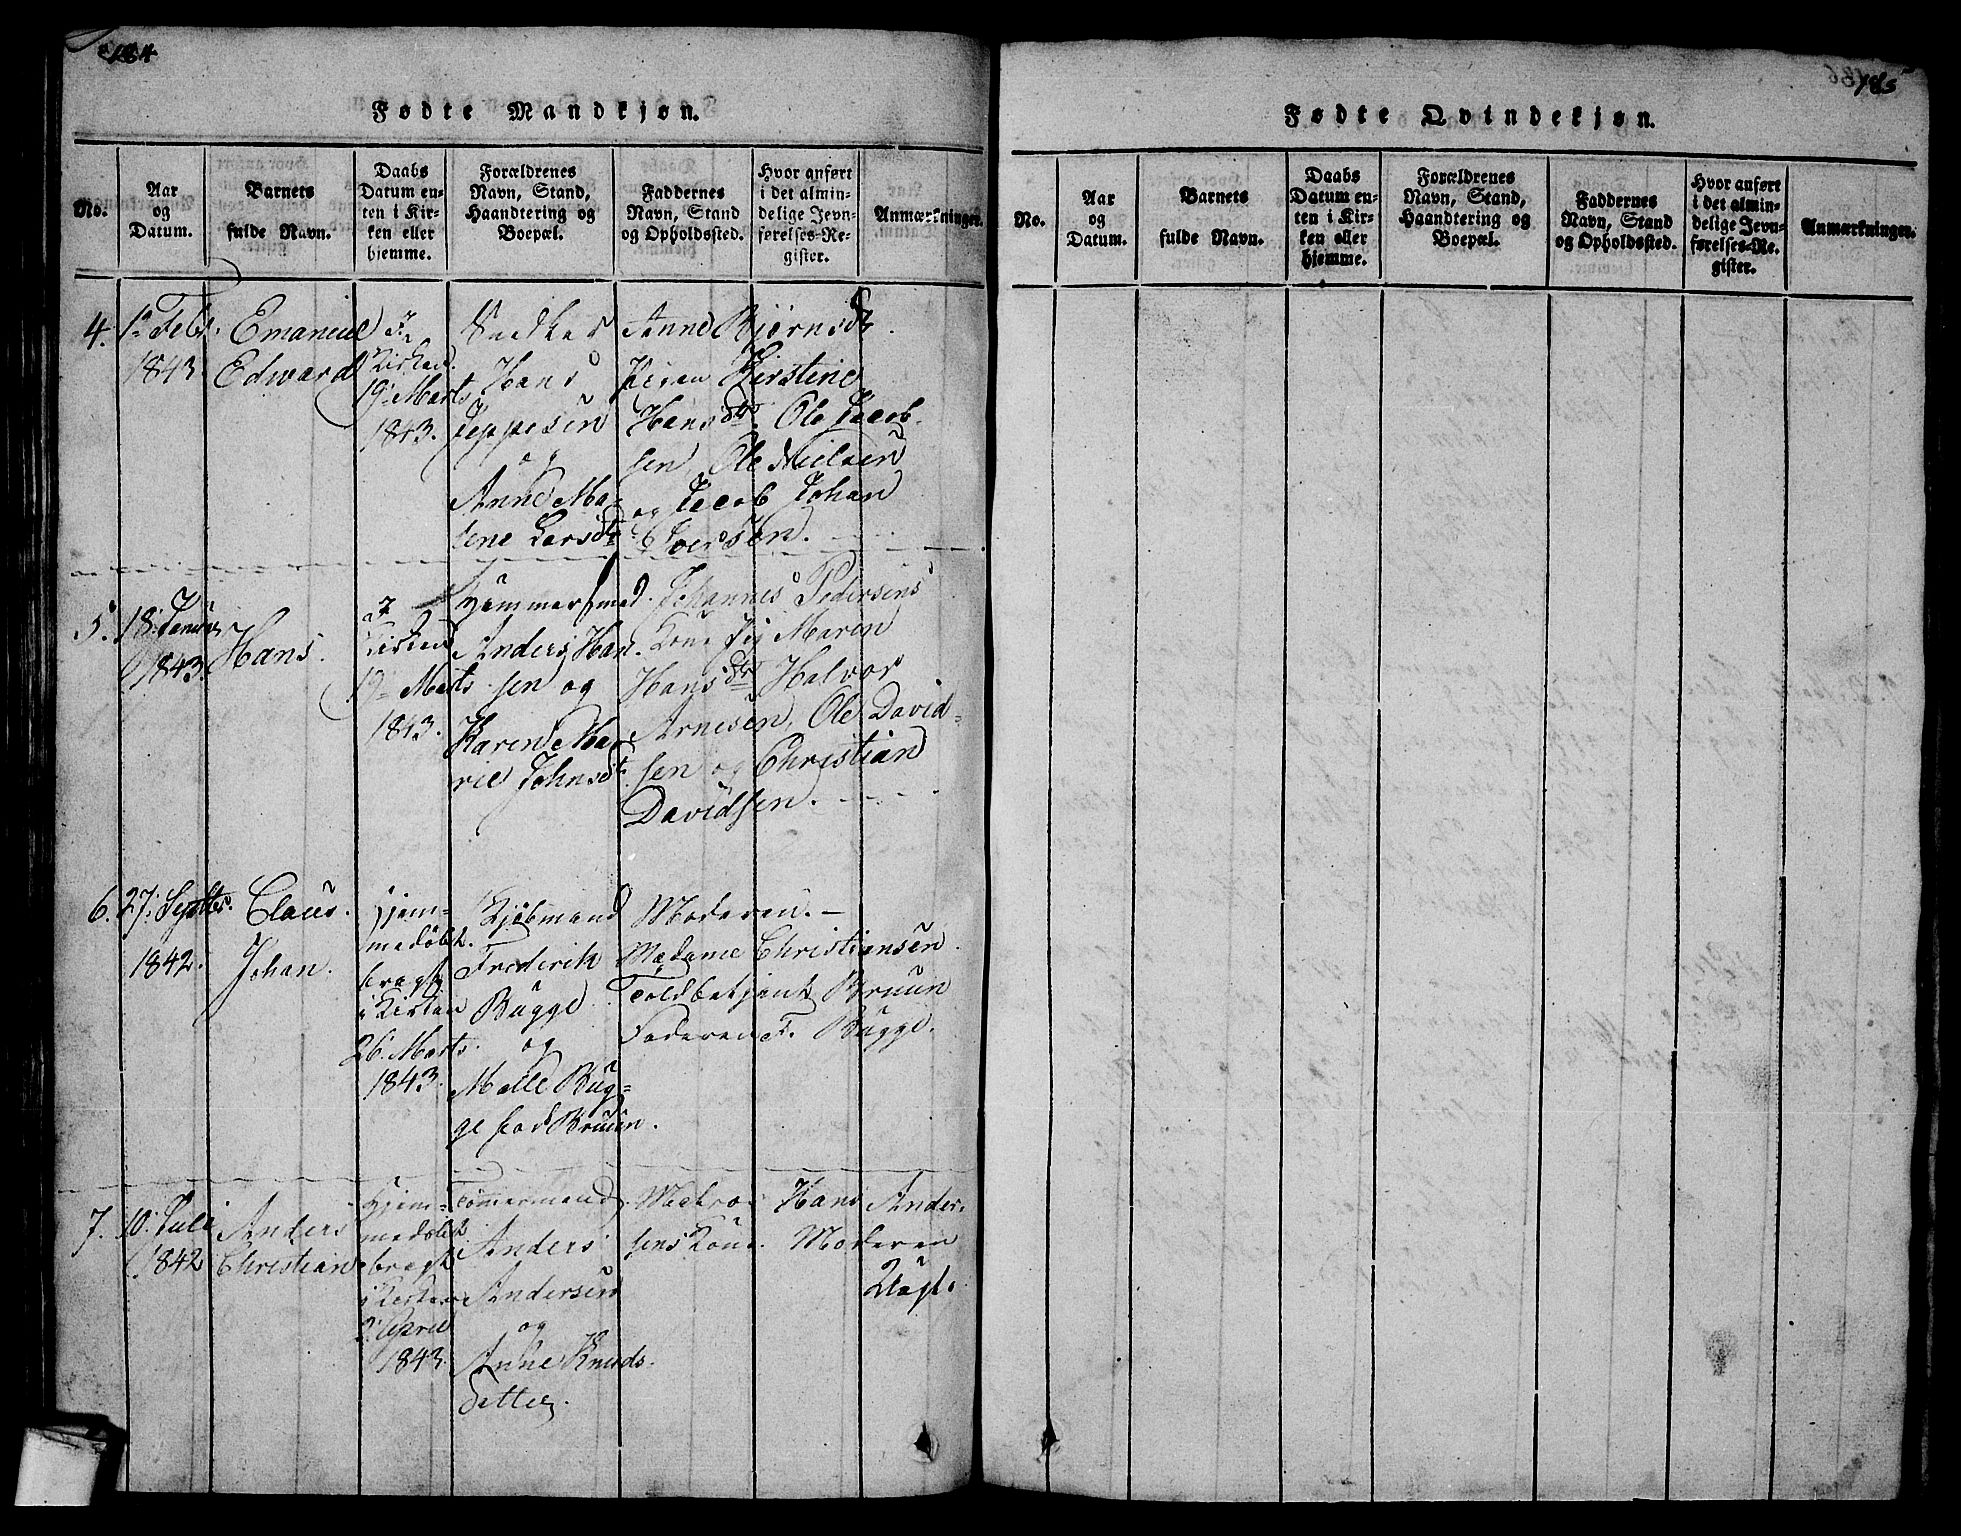 184
Fødte Mandkjøn.
No.
Aar
og
Datum.
Barnets
fulde Navn.
Daabs
Datum en-
ten i Kir-
ken eller
hjemme.
Forældrenes
Navn, Stand,
Haandtering og
Boepæl.
Faddernes
Navn, Stand
og Opholdssted.
Hvor anført
i det almin-
delige Jevn-
førelses-Re-
gister.
Anmærkninger.
4.
1ste Febr.
1843.
Emanuel
Edward
I
Kirken
19. Marts
1843.
Snedker
Hans
Jeppesen
og
Anne Ma-
lene Larsdtr
Anne Bjørnsdtr.
Karen Kirstine
Hansdtr. Ole Jacob-
sen, Ole Nielsen
og Jacob Johan
Iversen.
5.
18. Januar
1843.
Hans.
I
Kirken
19. Marts
1843.
Hammersmed
Anders Han-
sen og
Karen Ma-
rie Johnsdtr
Johannes Pedersens
Kone Maren
Hansdtr Halvor
Arnesen, Ole David-
sen og Christian
Davidsen.
6.
27. Septbr.
1842.
Claus
Johan.
Hjem-
medøbt.
bragt
i Kirken
26. Marts
1843.
Kjøbmand
Frederik
Bugge
og
Malle Bug-
ge fød Bruun.
Moderen.
Madame Christiansen
Toldbetjent Bruun
Faderen F. Bugge.
7.
10. Juli
1842
Anders
Christian
Hjem-
medøbt
bragt
i Kirken
2. April
1843.
Tømmermand
Anders
Andersen
og
Anne Knuds-
datter.
Matros Hans Ander-
sens Kone. Moderen
185
Fødte Qvindekjøn.
No.
Aar
og
Datum.
Barnets
fulde Navn.
Daabs
Datum en-
ten i Kir-
ken eller
hjemme.
Forældrenes
Navn, Stand,
Haandtering og
Boepæl.
Faddernes
Navn, Stand
og Opholdssted.
Hvor anført
i det almin-
delige Jevn-
førelses-Re-
gister.
Anmærkninger.